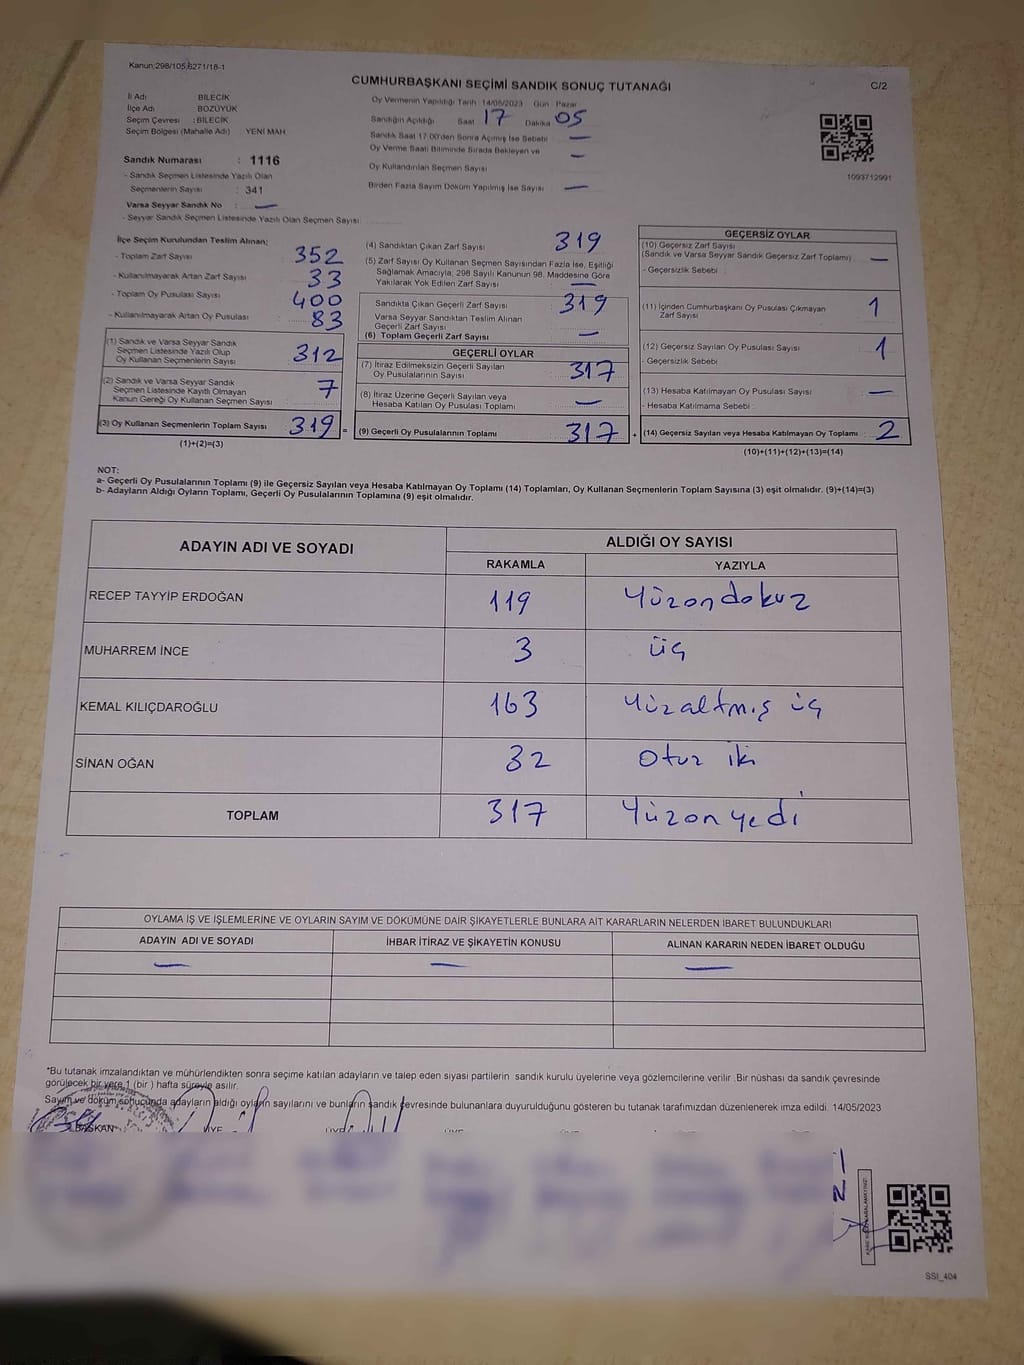 Kanun;298/105;6271/18-1
CUMHURBAŞKANI SEÇİMİ SANDIK SONUÇ TUTANAĞI
C/2
İl Adı BİLECİK
İlçe Adı BOZÜYÜK
Seçim Çevresi : BİLECİK
Seçim Bölgesi (Mahalle Adı) YENİ MAH
Sandık Numarası : 1116
- Sandık Seçmen Listesinde Yazılı Olan
Seçmenlerin Sayısı : 341
Varsa Seyyar Sandık No : —
- Seyyar Sandık Seçmen Listesinde Yazılı Olan Seçmen Sayısı:
Oy Vermenin Yapıldığı Tarih :14/05/2023 Gün : Pazar
Sandığın Açıldığı Saat 17 Dakika 05
Sandık Saat 17:00'den Sonra Açılmış İse Sebebi : —
Oy Verme Saati Bitiminde Sırada Bekleyen ve
Oy Kullandırılan Seçmen Sayısı : —
Birden Fazla Sayım Döküm Yapılmış İse Sayısı : —
1093712991
İlçe Seçim Kurulundan Teslim Alınan;
- Toplam Zarf Sayısı : 352
- Kullanılmayarak Artan Zarf Sayısı : 33
- Toplam Oy Pusulası Sayısı : 400
- Kullanılmayarak Artan Oy Pusulası : 83
(1) Sandık ve Varsa Seyyar Sandık
Seçmen Listesinde Yazılı Olup
Oy Kullanan Seçmenlerin Sayısı : 312
(2) Sandık ve Varsa Seyyar Sandık
Seçmen Listesinde Kayıtlı Olmayan
Kanun Gereği Oy Kullanan Seçmen Sayısı : 7
(3) Oy Kullanan Seçmenlerin Toplam Sayısı : 319 =
(1)+(2)=(3)
(4) Sandıktan Çıkan Zarf Sayısı : 319
(5) Zarf Sayısı Oy Kullanan Seçmen Sayısından Fazla İse, Eşitliği
Sağlamak Amacıyla; 298 Sayılı Kanunun 98. Maddesine Göre
Yakılarak Yok Edilen Zarf Sayısı : —
Sandıkta Çıkan Geçerli Zarf Sayısı : 319
Varsa Seyyar Sandıktan Teslim Alınan
Geçerli Zarf Sayısı :
(6) Toplam Geçerli Zarf Sayısı : —
GEÇERLİ OYLAR
(7) İtiraz Edilmeksizin Geçerli Sayılan
Oy Pusulalarının Sayısı : 317
(8) İtiraz Üzerine Geçerli Sayılan veya
Hesaba Katılan Oy Pusulası Toplamı : —
(9) Geçerli Oy Pusulalarının Toplamı : 317 +
GEÇERSİZ OYLAR
(10) Geçersiz Zarf Sayısı
(Sandık ve Varsa Seyyar Sandık Geçersiz Zarf Toplamı) : —
- Geçersizlik Sebebi :
(11) İçinden Cumhurbaşkanı Oy Pusulası Çıkmayan
Zarf Sayısı : 1
(12) Geçersiz Sayılan Oy Pusulası Sayısı : 1
- Geçersizlik Sebebi :
(13) Hesaba Katılmayan Oy Pusulası Sayısı : —
- Hesaba Katılmama Sebebi :
(14) Geçersiz Sayılan veya Hesaba Katılmayan Oy Toplamı : 2
(10)+(11)+(12)+(13)=(14)
NOT:
a- Geçerli Oy Pusulalarının Toplamı (9) ile Geçersiz Sayılan veya Hesaba Katılmayan Oy Toplamı (14) Toplamları, Oy Kullanan Seçmenlerin Toplam Sayısına (3) eşit olmalıdır. (9)+(14)=(3)
b- Adayların Aldığı Oyların Toplamı, Geçerli Oy Pusulalarının Toplamına (9) eşit olmalıdır.
ADAYIN ADI VE SOYADI
ALDIĞI OY SAYISI
RAKAMLA YAZIYLA
RECEP TAYYİP ERDOĞAN 119 Yüzondokuz
MUHARREM İNCE 3 üç
KEMAL KILIÇDAROĞLU 163 Yüzaltmış üç
SİNAN OĞAN 32 Otuz iki
TOPLAM 317 Yüzonyedi
OYLAMA İŞ VE İŞLEMLERİNE VE OYLARIN SAYIM VE DÖKÜMÜNE DAİR ŞİKAYETLERLE BUNLARA AİT KARARLARIN NELERDEN İBARET BULUNDUKLARI
ADAYIN ADI VE SOYADI İHBAR İTİRAZ VE ŞİKAYETİN KONUSU ALINAN KARARIN NEDEN İBARET OLDUĞU
— — —
*Bu tutanak imzalandıktan ve mühürlendikten sonra seçime katılan adayların ve talep eden siyasi partilerin sandık kurulu üyelerine veya gözlemcilerine verilir .Bir nüshası da sandık çevresinde
görülecek bir yere 1 (bir ) hafta süreyle asılır.
Sayım ve döküm sonucunda adayların aldığı oyların sayılarını ve bunların sandık çevresinde bulunanlara duyurulduğunu gösteren bu tutanak tarafımızdan düzenlenerek imza edildi. 14/05/2023
BAŞKAN ÜYE ÜYE
SSI_404